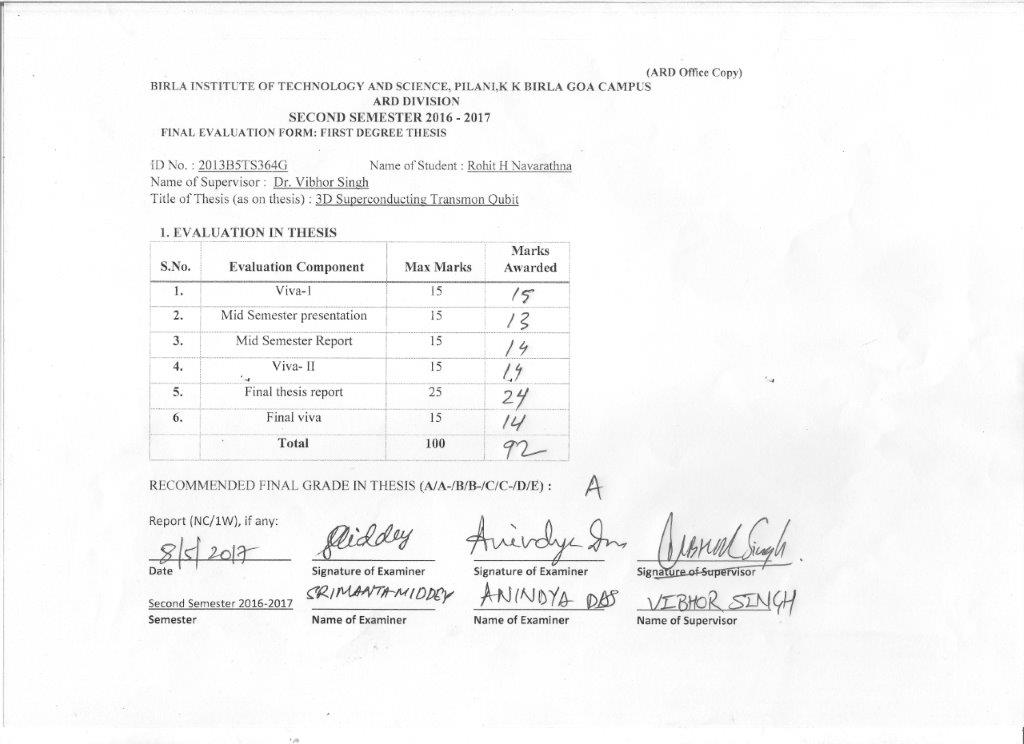 (ARD Office Copy)
BIRLA INSTITUTE OF TECHNOLOGY AND SCIENCE, PILANI,K K BIRLA GOA CAMPUS
ARD DIVISION
SECOND SEMESTER 2016 - 2017
FINAL EVALUATION FORM: FIRST DEGREE THESIS
ID No. : 2013B5TS364G Name of Student : Rohit H Navarathna
Name of Supervisor : Dr. Vibhor Singh
Title of Thesis (as on thesis) : 3D Superconducting Transmon Qubit
1. EVALUATION IN THESIS
S.No. Evaluation Component Max Marks Marks Awarded
1. Viva-I 15 15
2. Mid Semester presentation 15 13
3. Mid Semester Report 15 14
4. Viva- II 15 14
5. Final thesis report 25 24
6. Final viva 15 14
Total 100 92
RECOMMENDED FINAL GRADE IN THESIS (A/A-/B/B-/C/C-/D/E) : A
Report (NC/1W), if any:
8/5/2017 SMiddey Anindya Das Vibhor Singh
Date Signature of Examiner Signature of Examiner Signature of Supervisor
SRIMANTA MIDDEY ANINDYA DAS VIBHOR SINGH
Second Semester 2016-2017
Semester Name of Examiner Name of Examiner Name of Supervisor